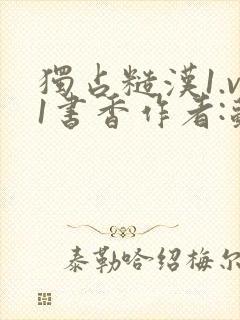 獨占糙漢1.v
1書香作者:
泰勒哈绍梅尔